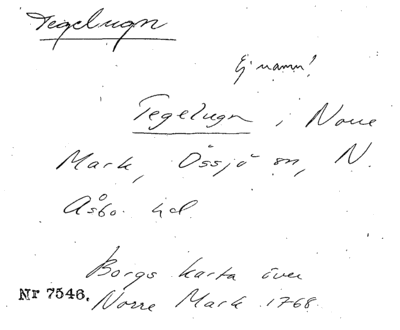 Tegelugn
Ej namn!
Tegelugn i Norre
Mark, Össjö sn, N.
Åsbo hd.
Borgs karta över
Nr 7546. Norre Mark 1768